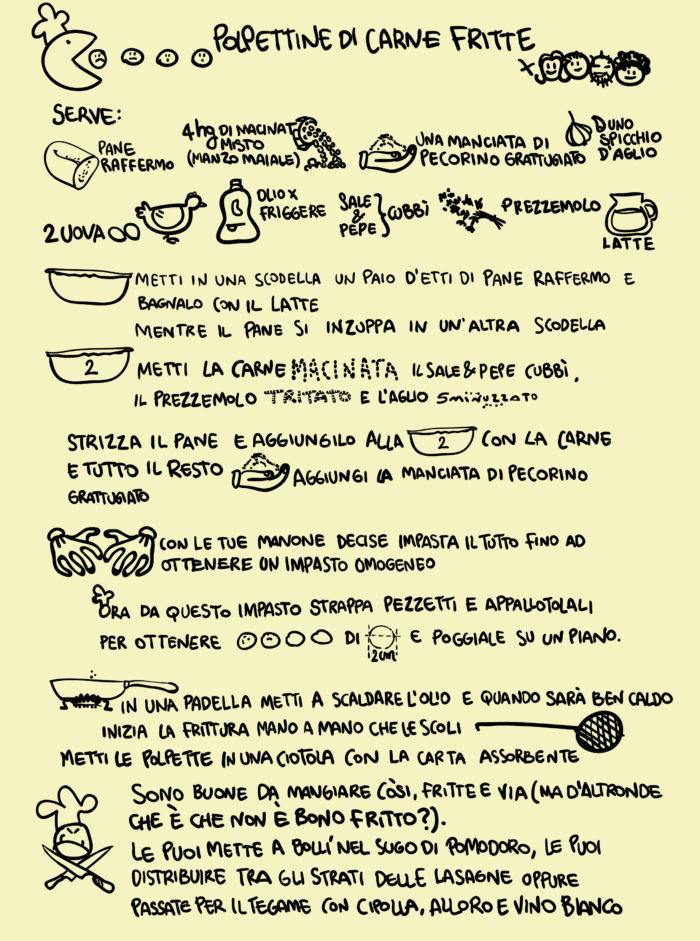 POLPETTINE DI CARNE FRITTE
x
SERVE:
PANE
RAFFERMO
4hg DI MACINATO
MISTO
(MANZO MAIALE)
UNA MANCIATA DI
PECORINO GRATTUGIATO
D UNO
SPICCHIO
D'AGLIO
2 UOVA
OLIO X
FRIGGERE
SALE
&
PEPE
} CUBBÌ
PREZZEMOLO
LATTE
METTI IN UNA SCODELLA UN PAIO D'ETTI DI PANE RAFFERMO E
BAGNALO CON IL LATTE
MENTRE IL PANE SI INZUPPA IN UN'ALTRA SCODELLA
2 METTI LA CARNE MACINATA IL SALE & PEPE CUBBÌ,
IL PREZZEMOLO TRITATO E L'AGLIO SMINUZZATO
STRIZZA IL PANE E AGGIUNGILO ALLA 2 CON LA CARNE
E TUTTO IL RESTO AGGIUNGI LA MANCIATA DI PECORINO
GRATTUGIATO
CON LE TUE MANONE DECISE IMPASTA IL TUTTO FINO AD
OTTENERE UN IMPASTO OMOGENEO
ORA DA QUESTO IMPASTO STRAPPA PEZZETTI E APPALLOTOLALI
PER OTTENERE DI 2cm E POGGIALE SU UN PIANO.
IN UNA PADELLA METTI A SCALDARE L'OLIO E QUANDO SARÀ BEN CALDO
INIZIA LA FRITTURA MANO A MANO CHE LE SCOLI
METTI LE POLPETTE IN UNA CIOTOLA CON LA CARTA ASSORBENTE
SONO BUONE DA MANGIARE COSÌ, FRITTE E VIA (MA D'ALTRONDE
CHE È CHE NON È BONO FRITTO?).
LE PUOI METTE A BOLLI' NEL SUGO DI POMODORO, LE PUOI
DISTRIBUIRE TRA GLI STRATI DELLE LASAGNE OPPURE
PASSATE PER IL TEGAME CON CIPOLLA, ALLORO E VINO BIANCO